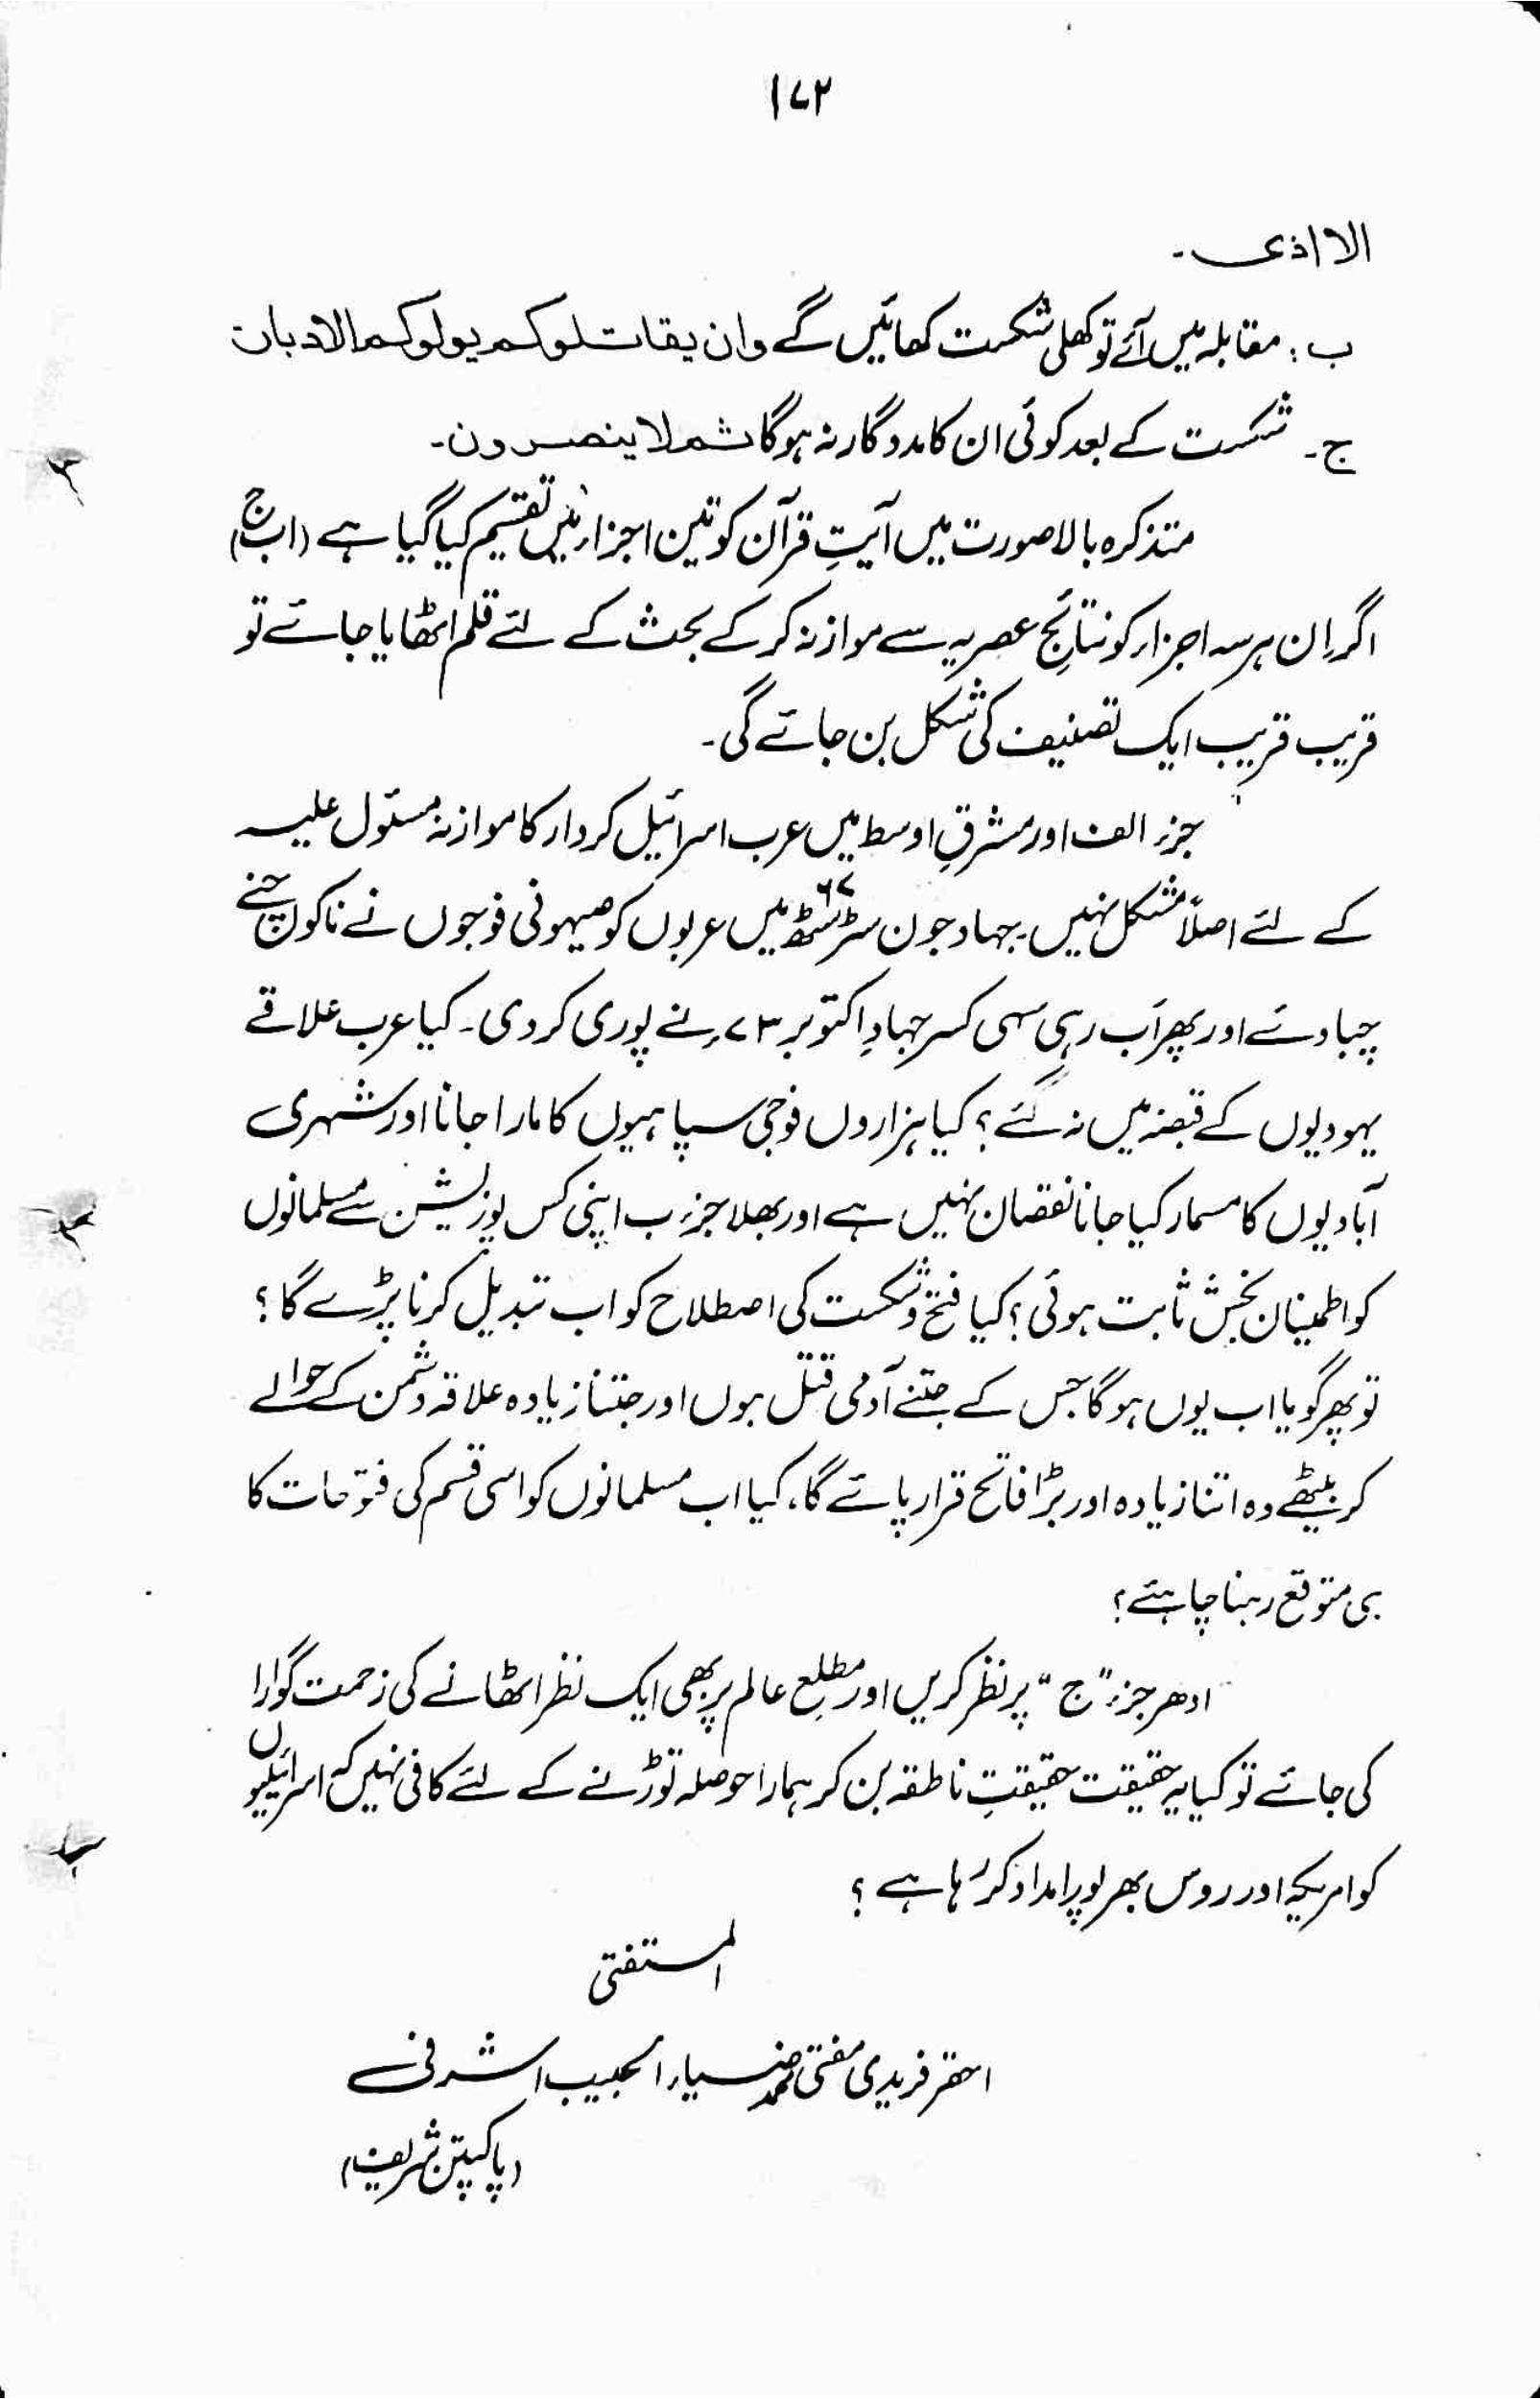 ۱۷۲
الا اذی۔
ب: مقابلہ میں آئے تو کھلی شکست کھائیں گے وان یقاتلوکم یولوکم الادبار
ج۔ شکست کے بعد کوئی ان کا مددگار نہ ہوگا ثم لا ینصرون۔
متذکرہ بالا صورت میں آیتِ قرآن کو تین اجزاء میں تقسیم کیا گیا ہے (ا ب ج)
اگر اِن ہر سہ اجزاء کو نتائجِ عصریہ سے موازنہ کر کے بحث کے لئے قلم اٹھایا جائے تو
قریب قریب ایک تصنیف کی شکل بن جائے گی۔
جزء الف اور مشرقِ اوسط میں عرب اسرائیل کردار کا موازنہ مسئول علیہ
کے لئے اصلاً مشکل نہیں۔ جہاد جون سڑسٹھ ۶۷ میں عربوں کو صیہونی فوجوں نے ناکوں چنے
چبا دئے اور پھر اَب رہی سہی کسر جہادِ اکتوبر ۷۳ء نے پوری کر دی۔ کیا عرب علاقے
یہودیوں کے قبضہ میں نہ گئے؟ کیا ہزاروں فوجی سپاہیوں کا مارا جانا اور شہری
آبادیوں کا مسمار کیا جانا نقصان نہیں ہے اور بھلا جزء ب اپنی کس پوزیشن سے مسلمانوں
کو اطمینان بخش ثابت ہوئی؟ کیا فتح و شکست کی اصطلاح کو اب تبدیل کرنا پڑے گا؟
تو پھر گویا اب یوں ہوگا جس کے جتنے آدمی قتل ہوں اور جتنا زیادہ علاقہ دشمن کے حوالے
کر بیٹھے وہ اتنا زیادہ اور بڑا فاتح قرار پائے گا، کیا اب مسلمانوں کو اسی قسم کی فتوحات کا
ہی متوقع رہنا چاہئے؟
ادھر جزء "ج" پر نظر کریں اور مطلعِ عالم پر بھی ایک نظر اٹھانے کی زحمت گوارا
کی جائے تو کیا یہ حقیقت حقیقتِ ناطقہ بن کر ہمارا حوصلہ توڑنے کے لئے کافی نہیں کہ اسرائیلیوں
کو امریکہ اور روس بھرپور امداد کر رہا ہے؟
المستفتی
احقر فریدی مفتی محمد ضیاء الحبیب اشرفی
(پاکپتن شریف)